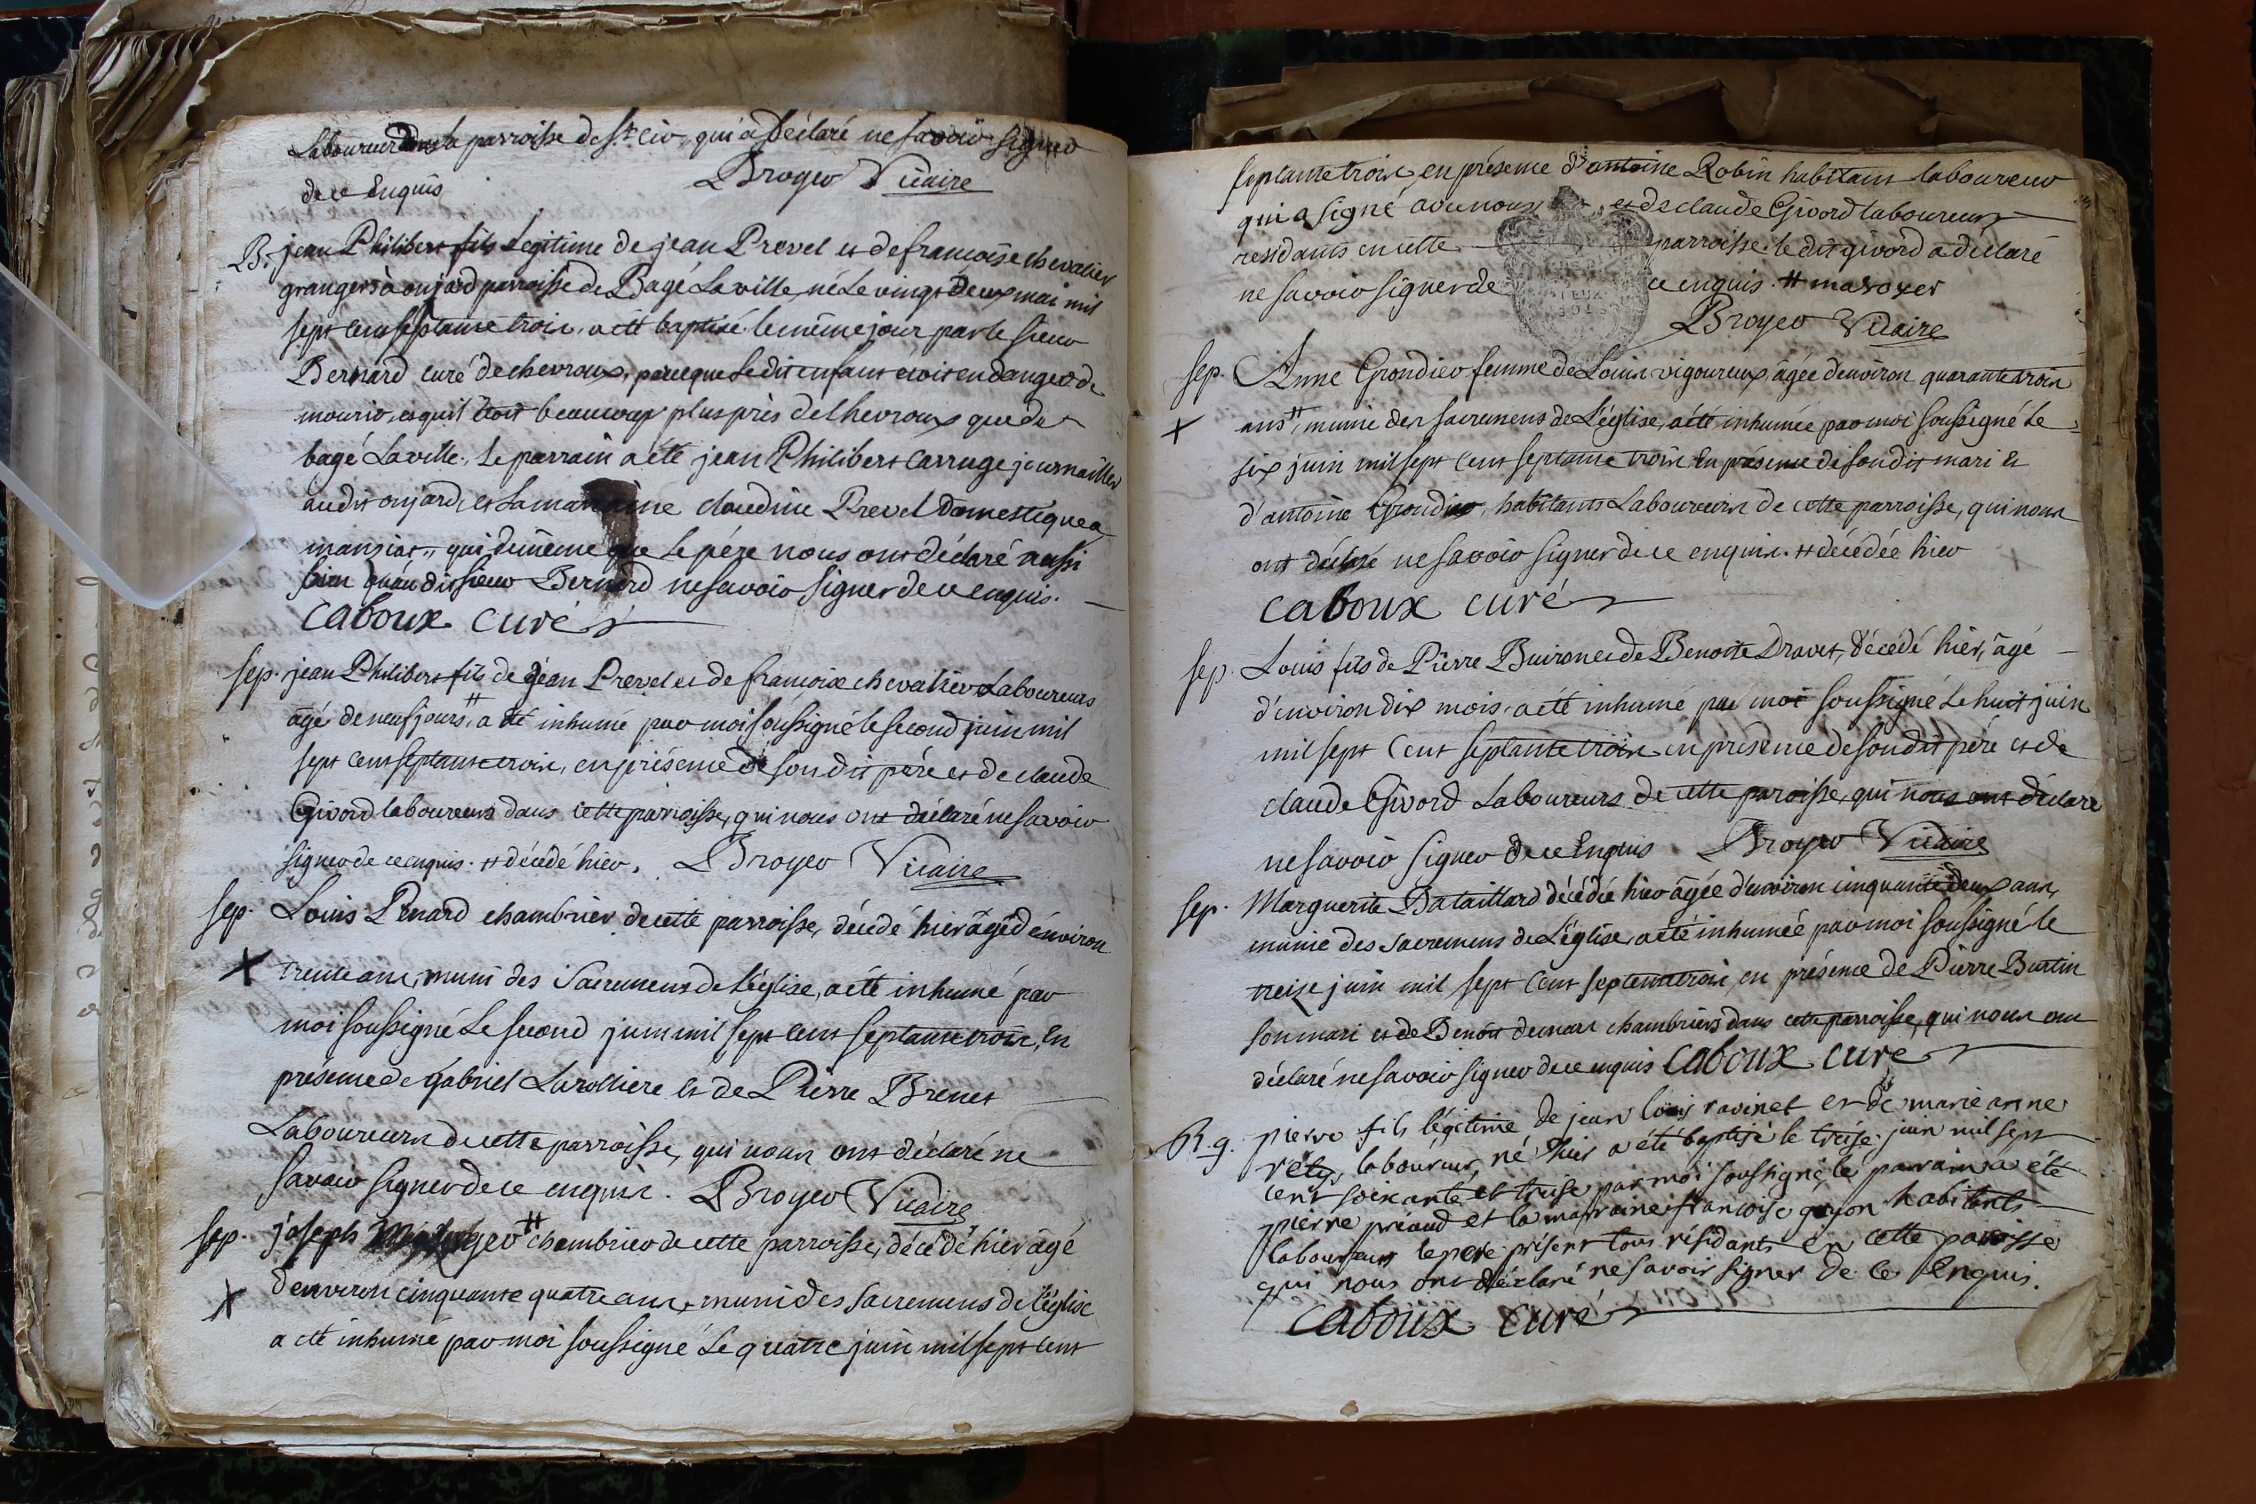 Laboureur dans la parroisse de St. Cir, qui a déclaré ne savoir signer
de ce Enquis Broyer Vicaire
B. jean Philibert fils Legitime de jean Prevel et de francoise chevalier
grangers à onjard parroisse de Bagé Laville, né Le vingt deux mai mil
sept cent septante trois, a été baptisé le même jour par le sieur
Bernard curé de chevroux, parceque Le dit enfant étoit en danger de
mourir, et qu'il étoit beaucoup plus près de Chevroux que de
bagé Laville. Le parrain a été jean Philibert Carruge journallier
audit onjard, et La marraine claudine Prevel Domestique a
manziat, qui de même que Le pére nous ont déclaré aussi
bien qu'au dit sieur Bernard ne savoir signer de ce enquis.
Caboux curé
sep. jean Philibert fils de jean Prevel et de francoise chevalier Laboureurs
âgé de neuf jours, # a été inhumé par moi soussigné le second juin mil
sept cent septante trois, en présence de son dit pére et de claude
Givord laboureurs dans cette parroisse, qui nous ont déclaré ne savoir
signer de ce enquis. # décédé hier. Broyer Vicaire
sep. Louis Penard chambrier de cette parroisse, décédé hier âgé d'environ
X trente ans, muni des Sacremens de L'église, a été inhumé par
moi soussigné Le second juin mil sept cent septante trois, En
présence de gabriel Larolliere et de Pierre Brenet
Laboureurs de cette parroisse, qui nous ont déclaré ne
savoir signer de ce enquis. Broyer Vicaire
sep. joseph # chambrier de cette parroisse, décédé hier âgé
X d'environ cinquante quatre ans, muni des sacremens de l'église
a été inhumé par moi soussigné Le quatre juin mil sept cent
septante trois, en présence d'antoine Robin habitant laboureur
qui a signé avec nous, et de claude Givord laboureurs
residants en cette parroisse. le dit givord a déclaré
ne savoir signer de ce enquis. # maroyer
Broyer Vicaire
sep. Anne Grondier femme de Louis vigoureux, âgée d'environ quarante trois
X ans #, munie des sacremens de L'église, a été inhumée par moi soussigné Le
six juin mil sept cent septante trois En présence de son dit mari et
d'antoine Grondier, habitants Laboureurs de cette parroisse, qui nous
ont déclaré ne savoir signer de ce enquis. # décédée hier
Caboux curé
sep. Louis fils de Pierre Buiron et de Benoite Dravet, décédé hier, âgé
d'environ dix mois, a été inhumé par moi soussigné Le huit juin
mil sept cent septante trois en presence de son dit pére et de
claude Givord Laboureurs de cette paroisse, qui nous ont déclaré
ne savoir signer de ce Enquis Broyer Vicaire
sep. Marguerite Bataillard décédée hier âgée d'environ cinquante deux ans,
munie des sacremens de L'église, a été inhumée par moi soussigné le
treize juin mil sept cent septante trois en présence de Pierre Burtin
son mari et de Benoit chambriers dans cette parroisse, qui nous ont
déclaré ne savoir signer de ce enquis Caboux curé
pierre fils légitime de jean louis ravinet et de marie anne
laboureurs, né hier a été baptisé le treise juin mil sept
cent soixante et treise par moi soussigné, le parrain a été
pierre préaud et la marraine francoise guyon habitants
laboureurs le pere présent tous résidants en cette paroisse
qui nous ont déclaré ne savoir signer de ce Enquis.
Caboux curé